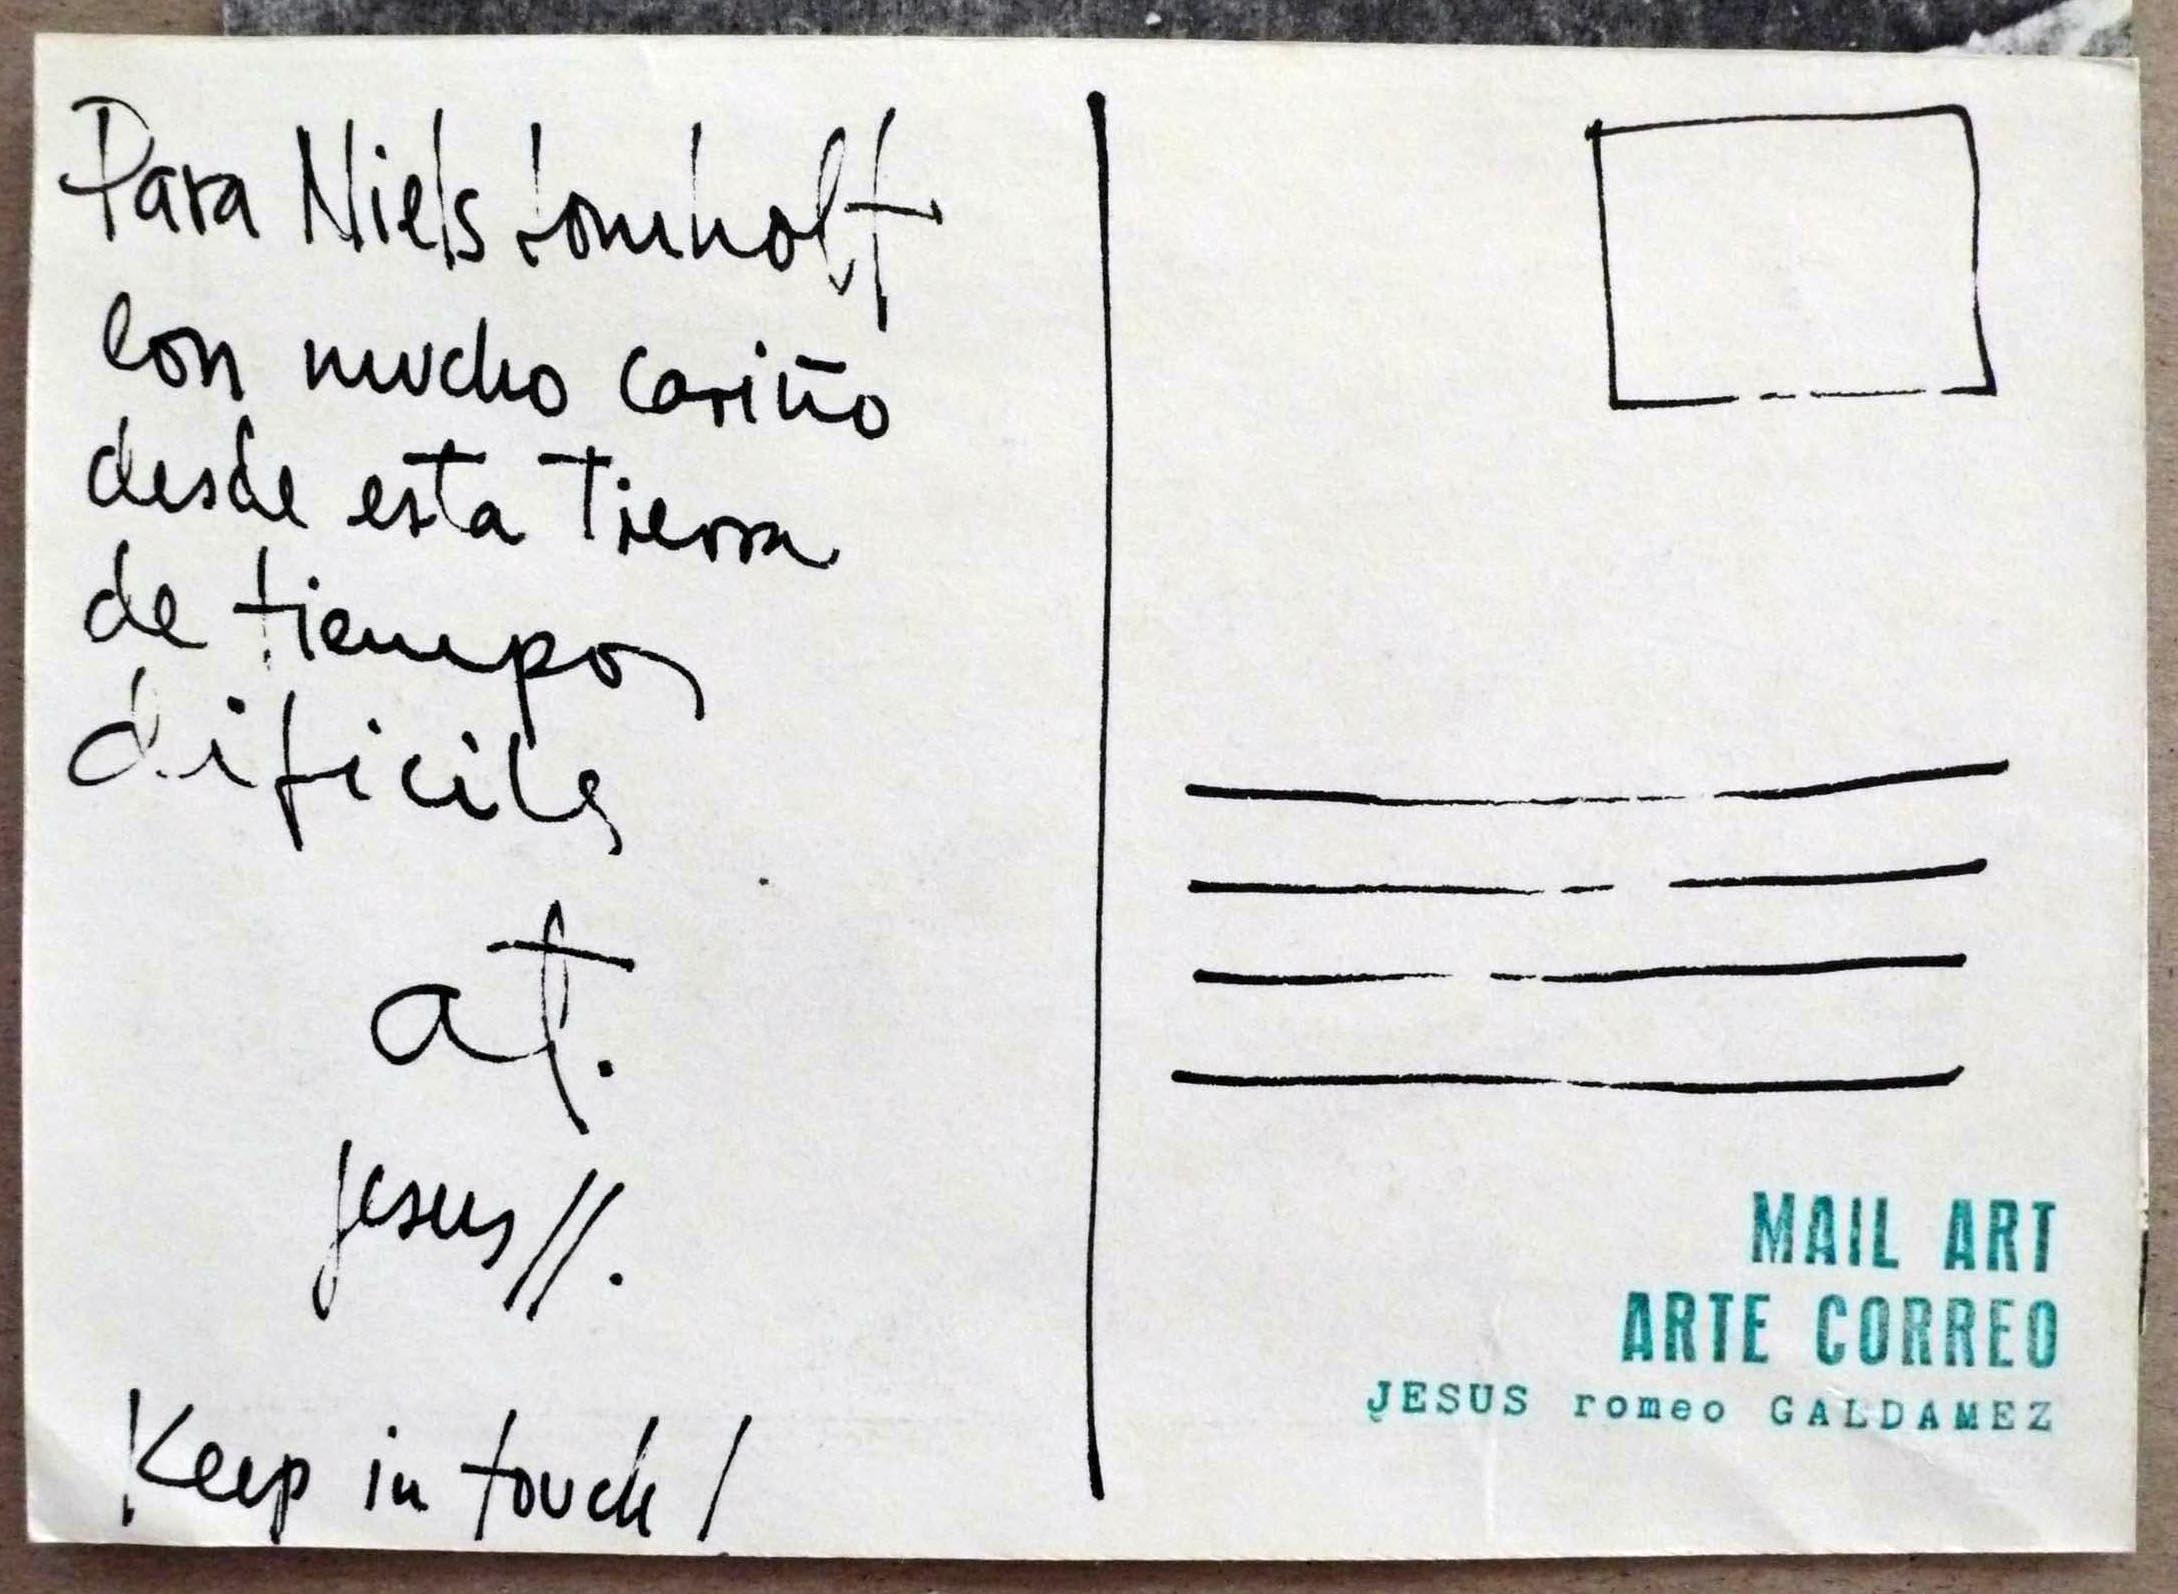 Para Niels Lomholt
con mucho cariño
desde esta Tierra
de tiempos
dificiles
at.
jesus//.
¡Keep in touch!
MAIL ART
ARTE CORREO
JESUS romeo GALDAMEZ